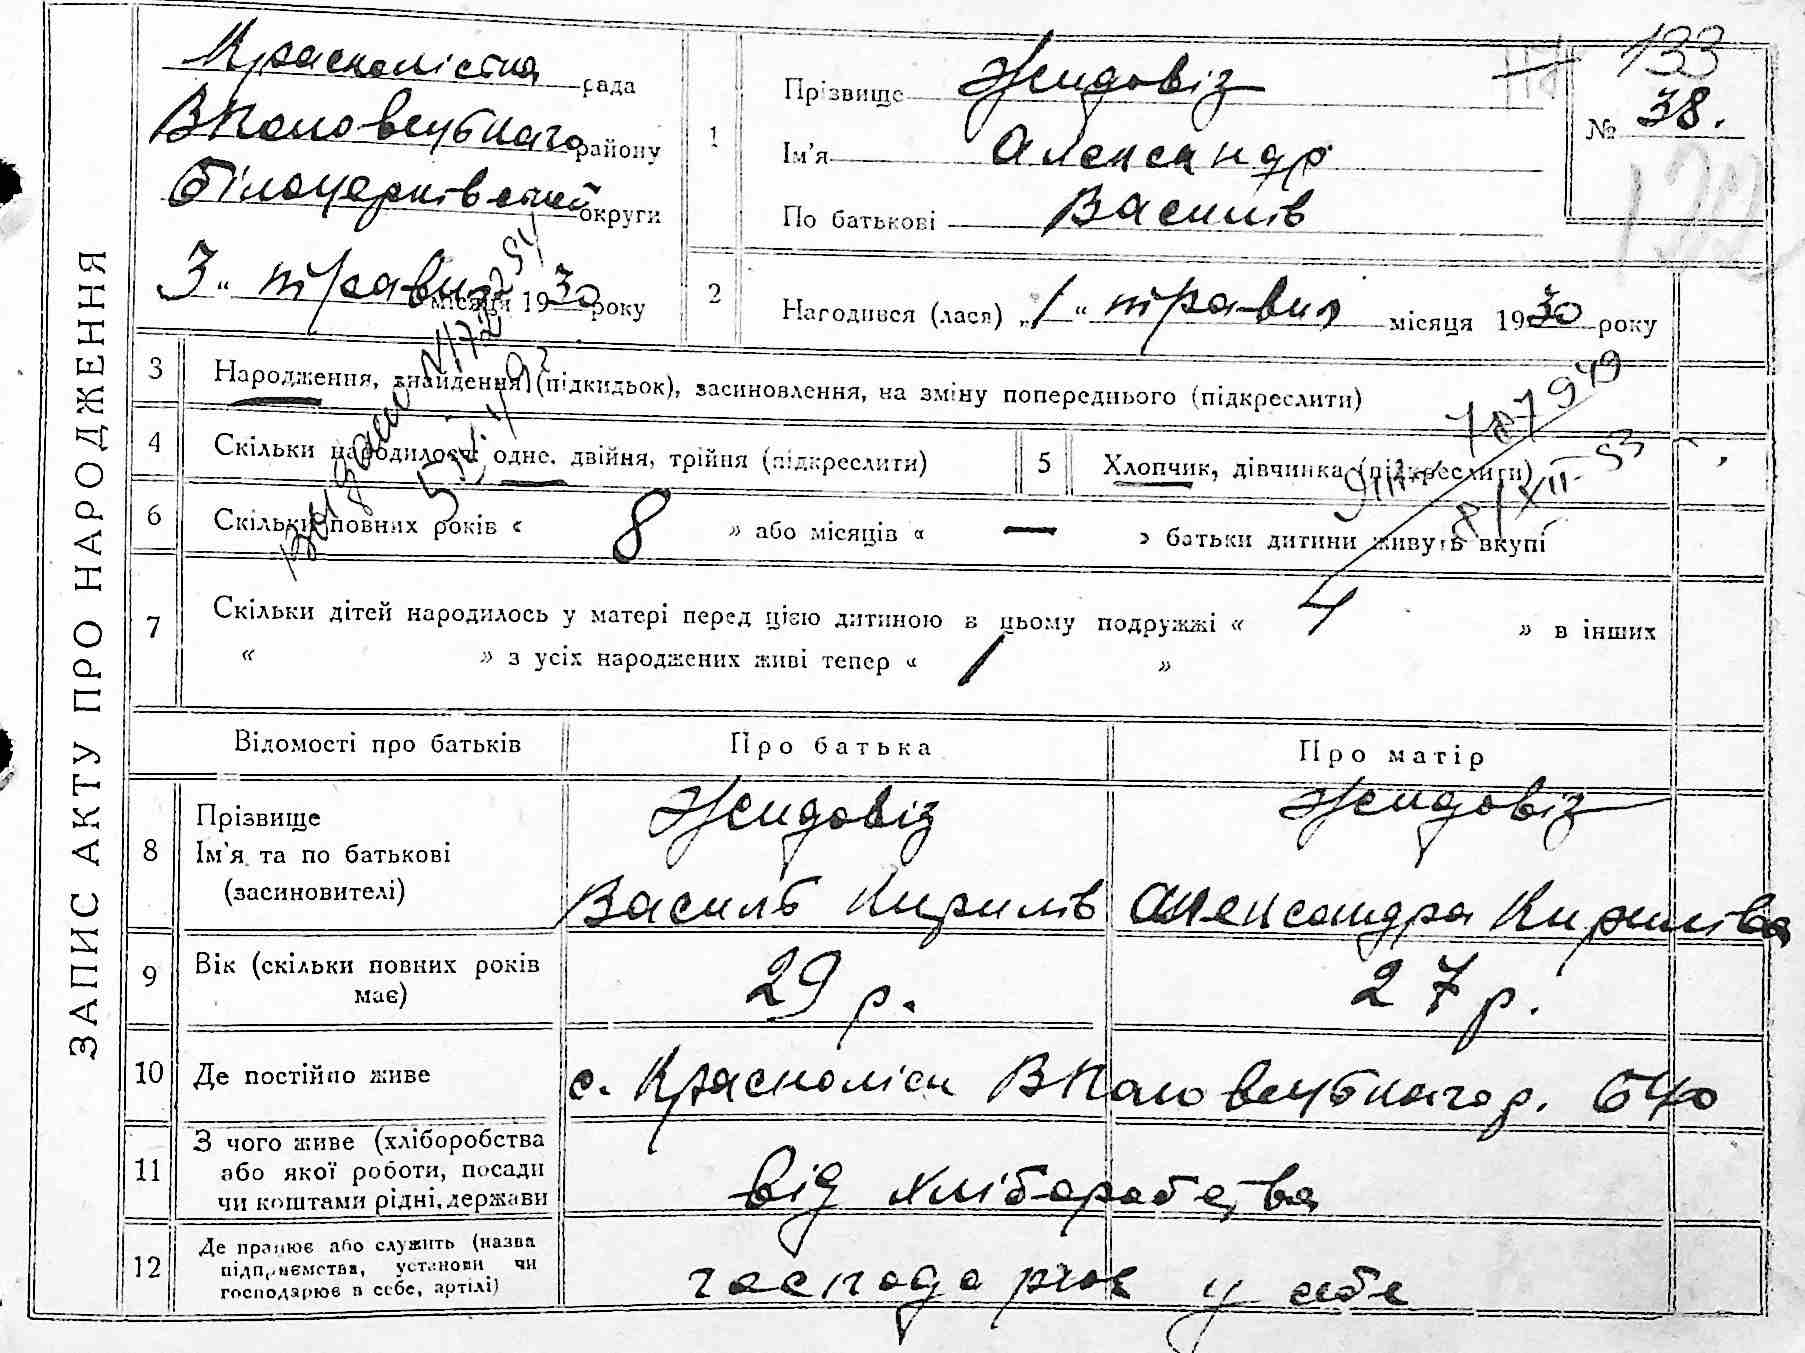 ЗАПИС АКТУ ПРО НАРОДЖЕННЯ
Красноліська рада
ВПоловецького району
Білоцерківської округи
3 " травня місяця 1930 року
1
Прізвище Жидовіз
Ім'я Александр
По батькові Василів
133
№ 38.
2
Народився (лася) „1" травня місяця 1930 року
3
Народження, знайдення (підкидьок), засиновлення, на зміну попереднього (підкреслити)
4
Скільки народилось: одне, двійня, трійня (підкреслити)
5
Хлопчик, дівчинка (підкреслити)
6
Скільки повних років « 8 » або місяців « — » батьки дитини живуть вкупі
7
Скільки дітей народилось у матері перед цією дитиною в цьому подружжі « 4 » в інших
« » з усіх народжених живі тепер « 1 »
Відомості про батьків
Про батька
Про матір
8
Прізвище
Ім'я та по батькові
(засиновителі)
Жидовіз
Василь Кирилів
Жидовіз
Александра Кирилівна
9
Вік (скільки повних років
має)
29 р.
27 р.
10
Де постійно живе
с. Красноліси ВПоловецького р. БЦо
11
З чого живе (хліборобства
або якої роботи, посади
чи коштами рідні, держави
від хліборобства
12
Де працює або служить (назва
підприємства, установи чи
господарює в себе, артілі)
господарює у себе